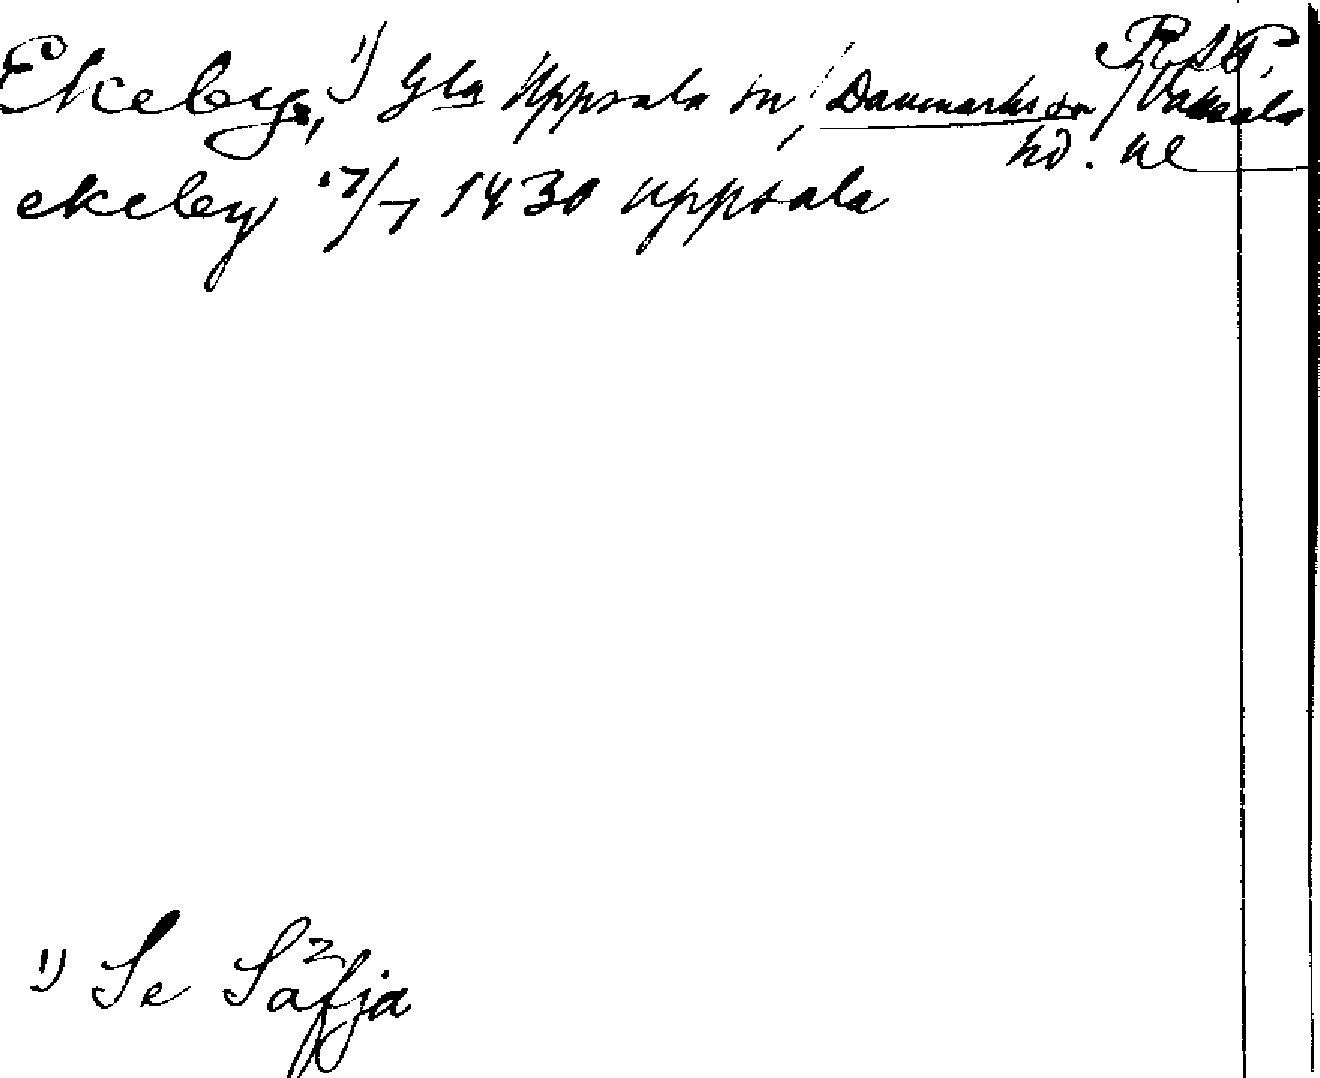 R. 1. P.
Ekeby, ¹⁾ Gla Uppsala sn, / Danmarks sn / Vaksala
hd. Ul
ekeby 17/7 1430 uppsala
¹⁾ Se Säfja